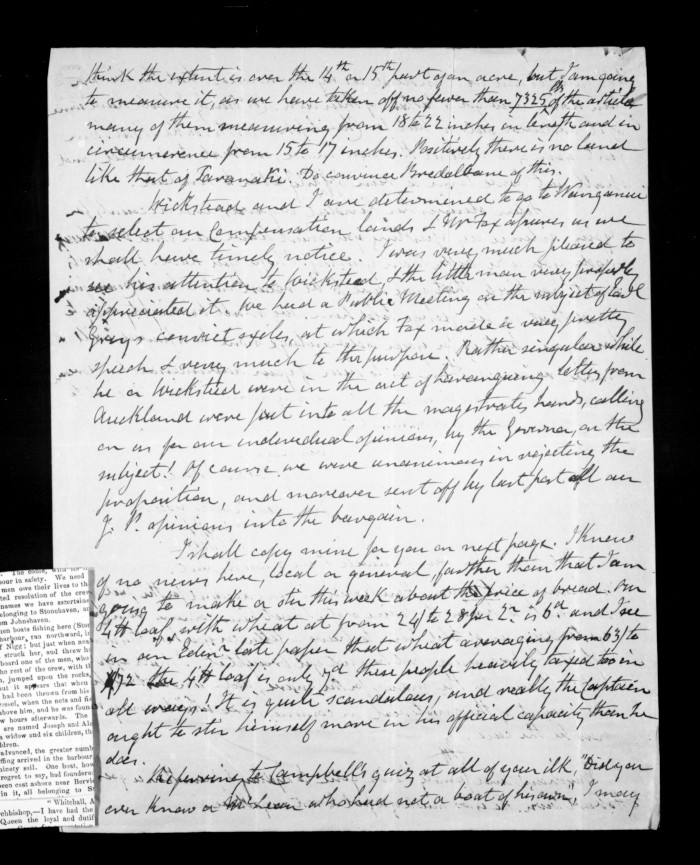 think the extent is over the 14th or 15th part of an acre, but I am going
to measure it, as we have taken off no fewer than 7325 lbs of the article
many of them measuring from 18 to 22 inches in length and in
circumerence from 15 to 17 inches. Positively there is no land
like that of Taranaki. Do convince Bredalbane of this.
Wicksteed and I are determined to go to Wanganui
to select our Compensation lands & Mr Fox assures us we
shall have timely notice. I was very much pleased to
see his attention to Wicksteed, & the little man very properly
appreciated it. We had a Public Meeting on the subject of Earl
Grey's convict exiles, at which Fox made a very pretty
speech & very much to the purpose. Rather singular while
he or Wicksteed were in the act of haranguing letters from
Auckland were put into all the magistrates hands, calling
on us for our individual opinions, by the Governor, on the
subject! Of course we were unanimous in rejecting the
proposition, and moreover sent off by last post all our
J. P. opinions into the bargain.
I shall copy mine for you on next page. I know
of no news here, local or general, further than that I am
going to make a stir this week about the price of bread. Our
4 lb loaf with wheat at from 24/ to 28 per is 6d and I see
in an Edinr late paper that wheat averaging from 63/ to
72 the 4 lb loaf is only 7d these people heavily taxed too in
all ways! It is quite scandalous, and really the Captain
ought to stir himself more in his official capacity than he
does.
Referring to Campbell's quiz at all of your ilk, "Did you
ever know a McLean who had not a boat of his own", I may
our in safety. We need
men owe their lives to th
ted resolution of the crew
names we have ascertain
belonging to Stonehaven,
om Johnshaven.
hen boats fishing here (Sto
harbour, ran northward,
f Nigg; but just when
struck her, and threw h
board one of the men, who
the rest of the crew, with th
jumped upon the rocks,
ut it appears that when
had been thrown from his
essel, when the nets and fis
above him, and he was foun
w hours afterwards. The
are named Joseph and Ale
a widow and six children, th
ldren.
advanced, the greater numb
ffing arrived in the harbour
ninety sail. One boat, how
regret to say, had foundere
een cast ashore near Berwi
in it, all belonging to St
"Whitehall, A
rchbishop,—I have had the
Queen the loyal and dutif